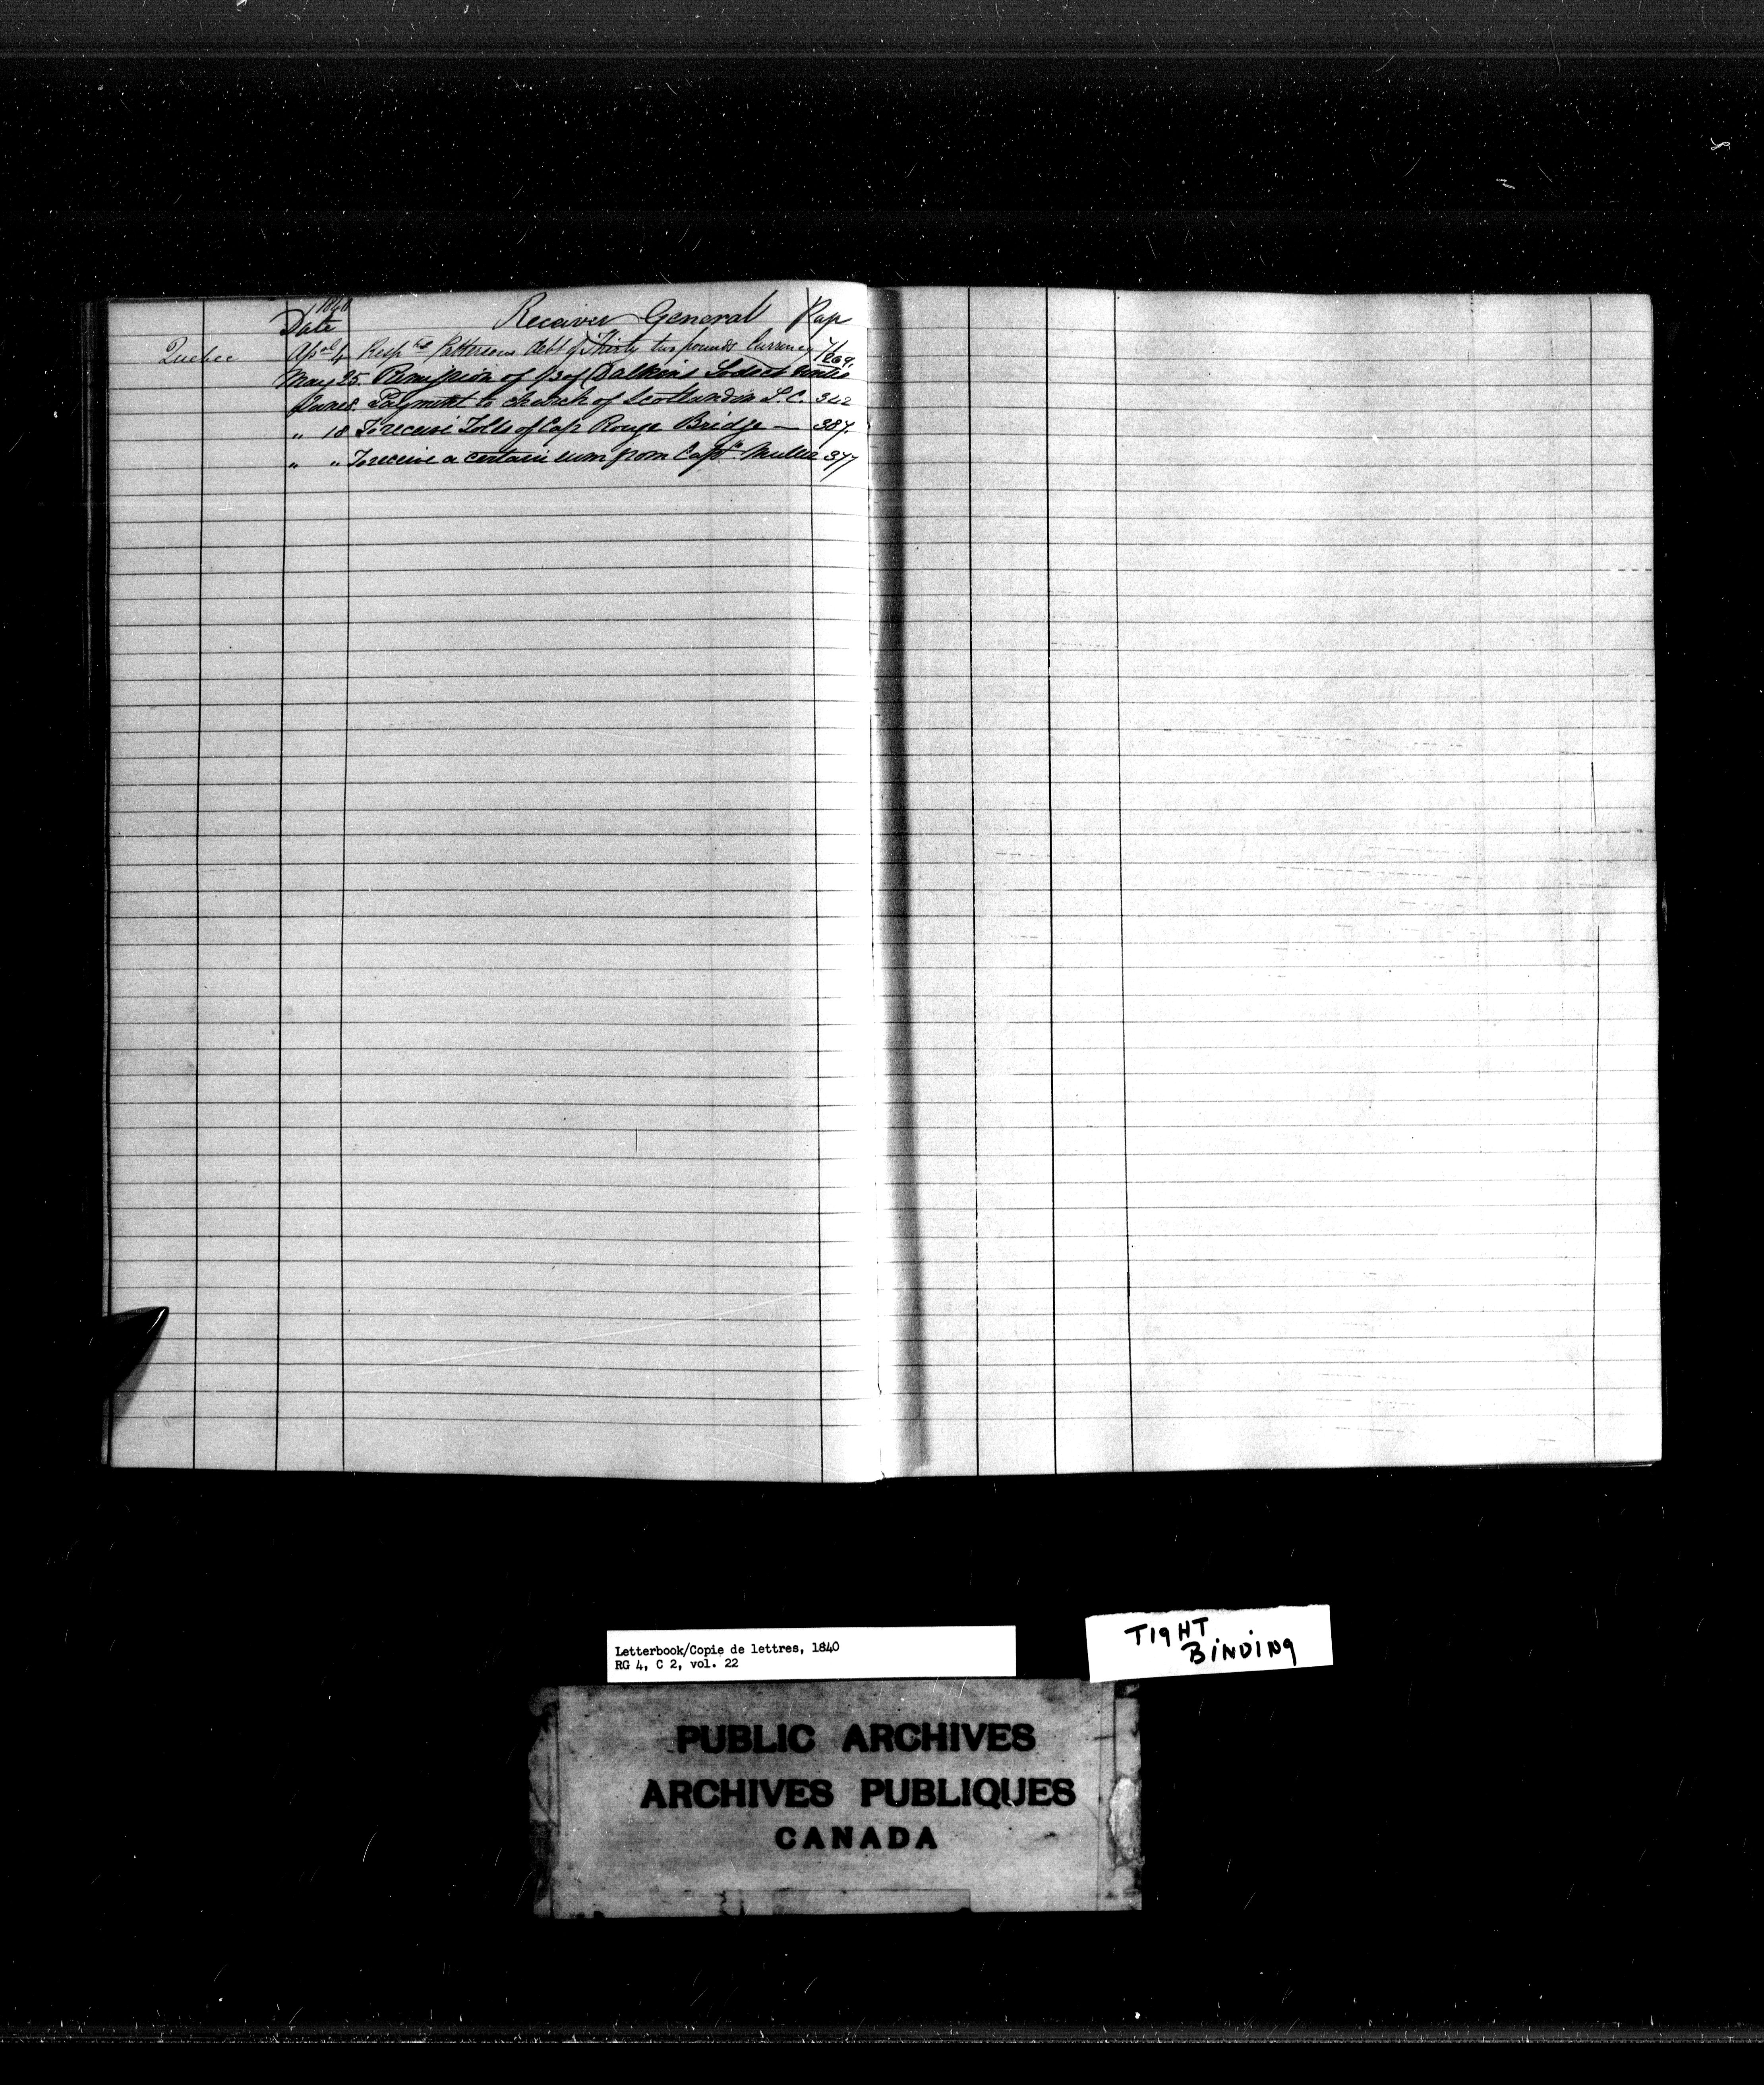 1840
Date Receiver General Page
Quebec April 4 Resp tg Pattersons debt of Thirty two pounds Currency
269.
May 25 Remission of of
June 8. Payment to church of Scotland in L.C. 342
" 18 To receive Tolls of Cap Rouge Bridge — 387.
" " To receive a certain sum from Capt. 377
Letterbook/Copie de lettres, 1840
RG 4, C 2, vol. 22
TIGHT
BINDING
PUBLIC ARCHIVES
ARCHIVES PUBLIQUES
CANADA